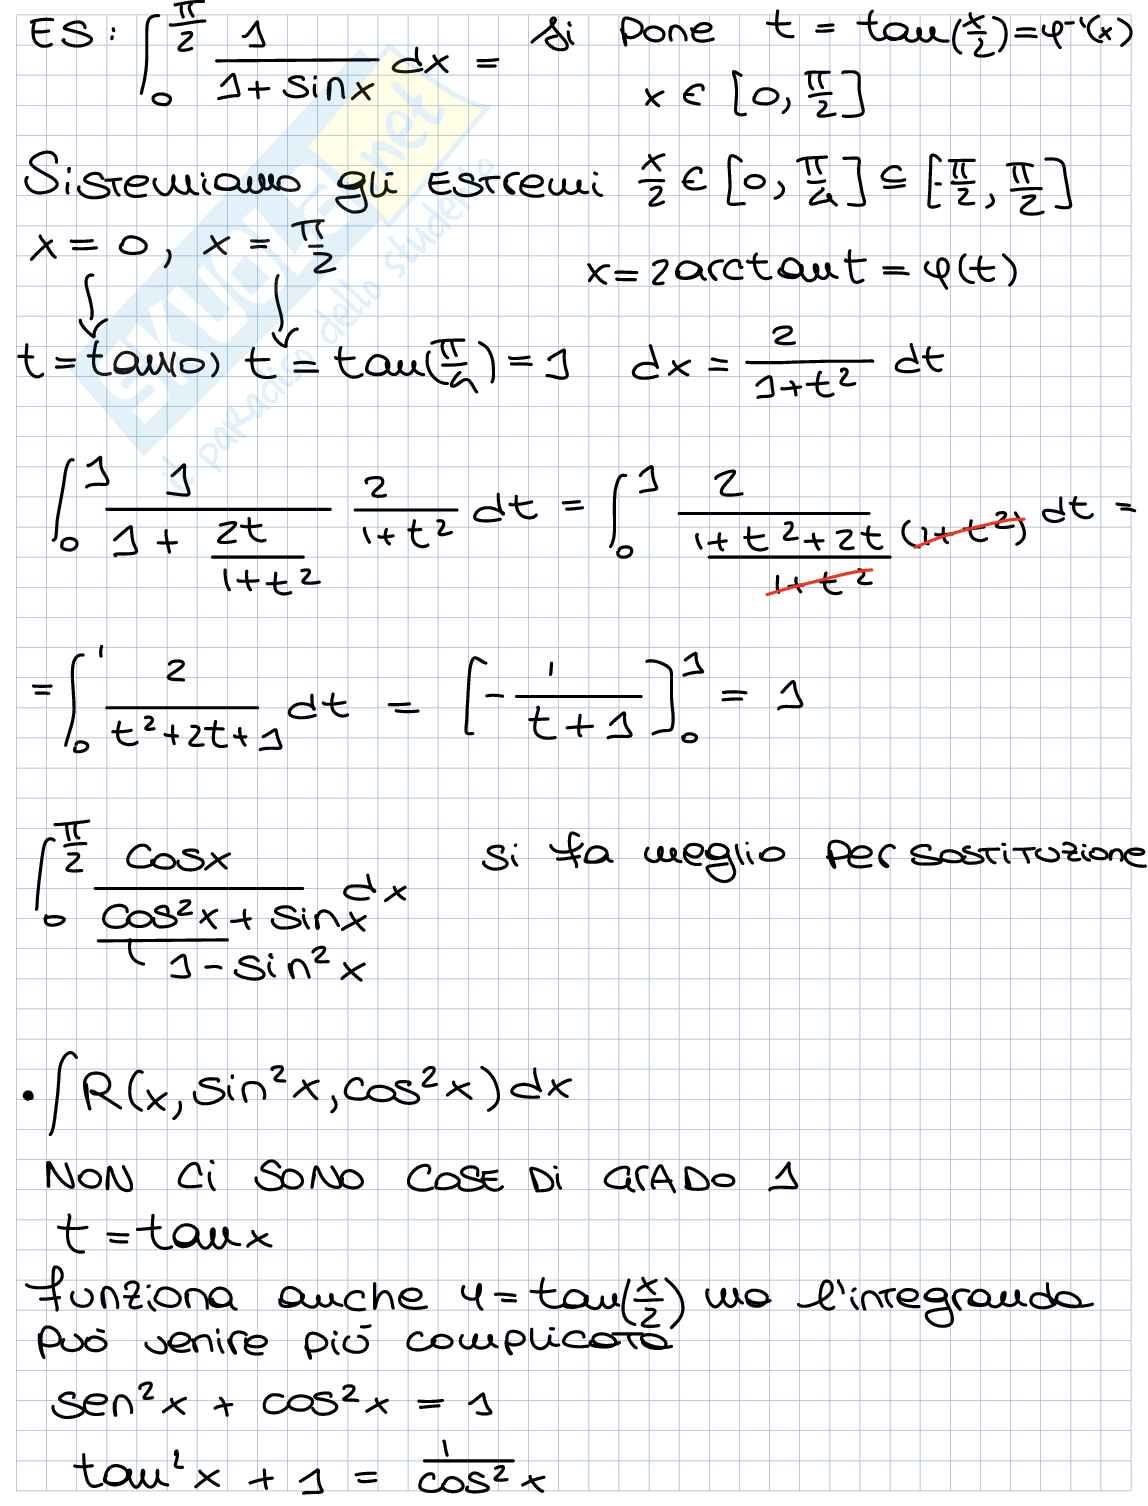 ES: ∫_0^{π/2} 1/(1+sinx) dx = si pone t = tan(x/2) = φ⁻¹(x)
x ∈ [0, π/2]
Sistemiamo gli estremi x/2 ∈ [0, π/4] ⊆ [-π/2, π/2]
x = 0, x = π/2
x = 2arctan t = φ(t)
t = tan(0), t = tan(π/4) = 1 dx = 2/(1+t²) dt
∫_0^1 1/(1 + 2t/(1+t²)) 2/(1+t²) dt = ∫_0^1 2/((1+t²+2t)/(1+t²) (1+t²)) dt =
= ∫_0^1 2/(t²+2t+1) dt = [-1/(t+1)]_0^1 = 1
∫_0^{π/2} cosx/(cos²x + sinx) dx si fa meglio per sostituzione
1 - sin²x
• ∫R(x, sin²x, cos²x) dx
NON Ci SONO COSE Di GRADO 1
t = tanx
funziona anche φ = tan(x/2) ma l'integrando
può venire più complicato
sen²x + cos²x = 1
tan²x + 1 = 1/cos²x
SKUOLA.net
il paradiso dello studente